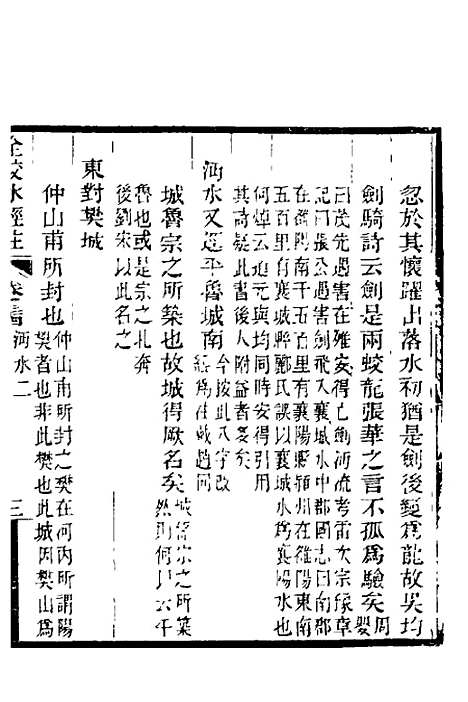 忽於其懷躍出落水初猶是劍後變爲龍故吳均
劍騎詩云劍是兩蛟龍張華之言不孤爲驗矣周嬰
曰茂先遇害在雒安得亡劍沔流考雷次宗豫章
記曰張公遇害劍飛入襄城水中郡國志曰南郡
在雒陽南千五百里有襄陽縣潁州在雒陽東南
五百里有襄城縣酈氏誤以襄城水爲襄陽水也
何焯云道元與均同時安得引用
其詩疑此書後人附益者多矣
沔水又逕平魯城南全按此八字改
經爲注戴趙同
城魯宗之所築也故城得厥名矣城魯宗之所築
然則何以云平
魯也或是宗之北奔
後劉宋以此名之
東對樊城
仲山甫所封也仲山甫所封之樊在河內所謂陽
樊者也非此樊也此城因樊山爲
全校水經注
沔水二
三